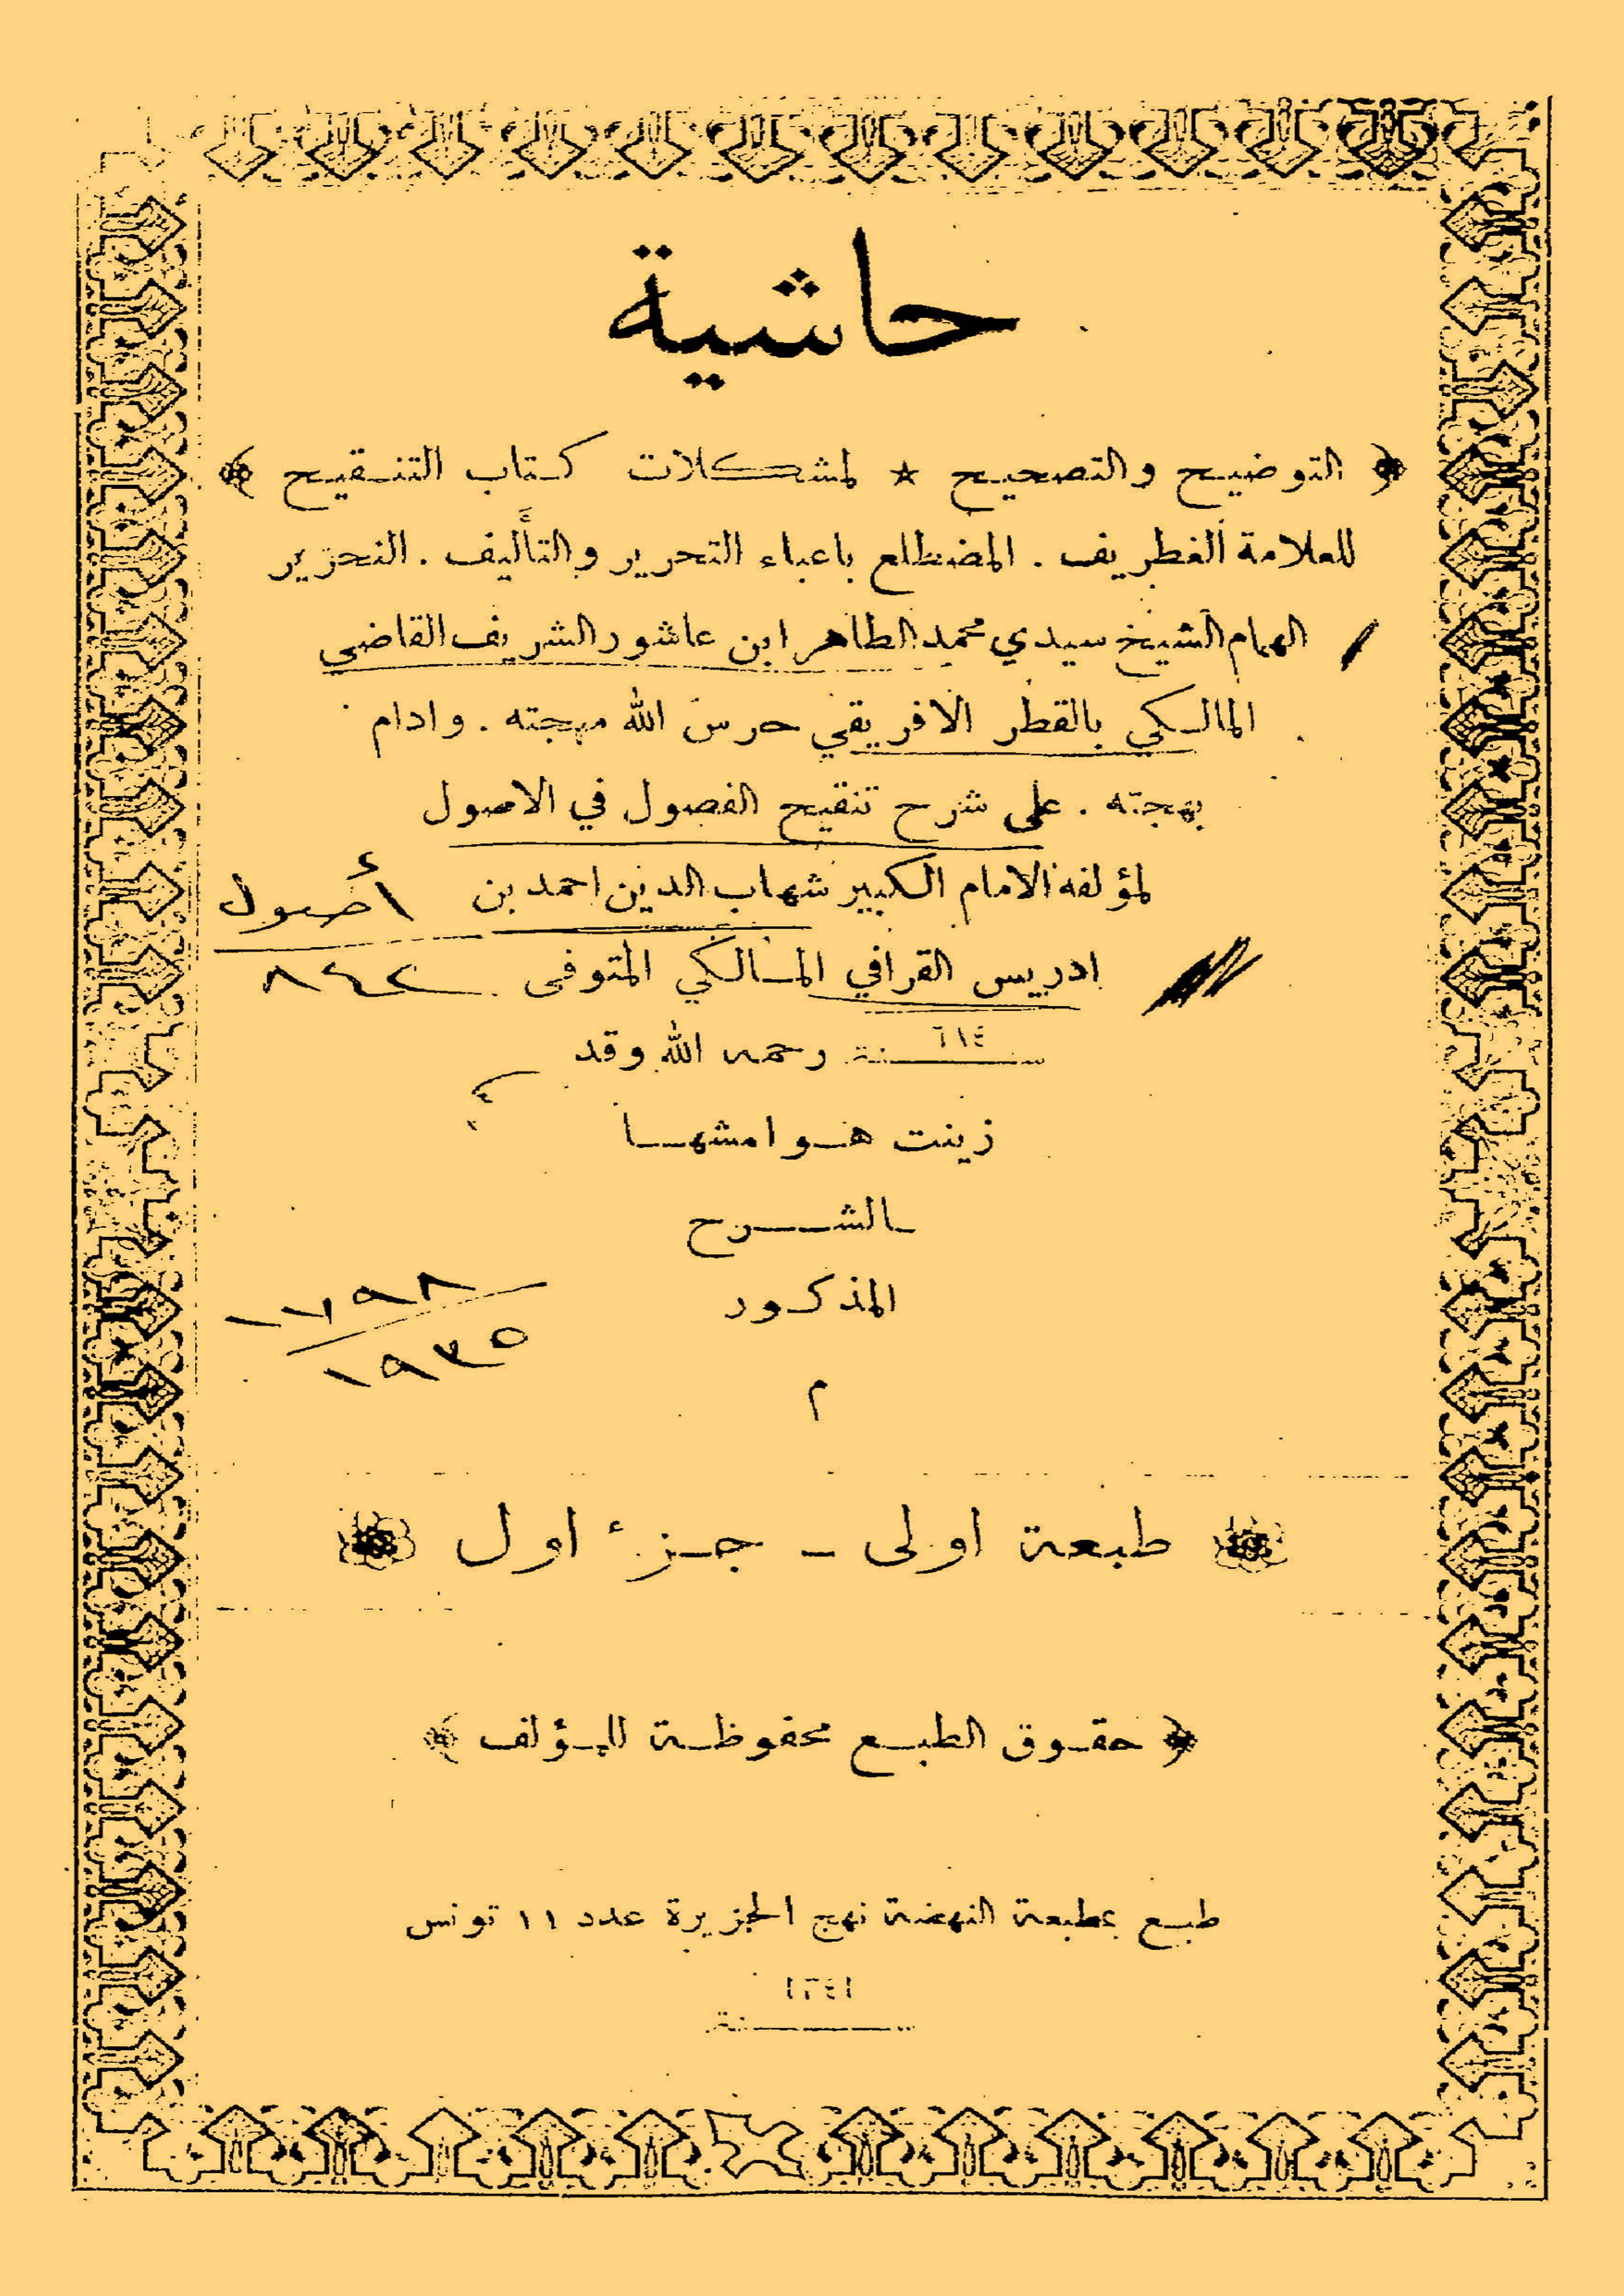 حاشية
﴿ التوضيح والتصحيح ★ لمشكلات كتاب التنقيح ﴾
للعلامة الغطريف . المضطلع باعباء التحرير والتأليف . النحرير
الهمام الشيخ سيدي محمد الطاهر ابن عاشور الشريف القاضي
المالكي بالقطر الافريقي حرس الله مهجته . وادام
بهجته . على شرح تنقيح الفصول في الاصول
لمؤلفه الامام الكبير شهاب الدين احمد بن
أصول
ادريس القرافي المالكي المتوفى
٨٤٢
سنة ٦٨٤ رحمه الله وقد
زينت هوامشها
بالشرح
المذكور
١٩٣٥
م
طبعة اولى - جزء اول
﴿ حقوق الطبع محفوظة للمؤلف ﴾
طبع بمطبعة النهضة نهج الجزيرة عدد ١١ تونس
سنة ١٣٤١